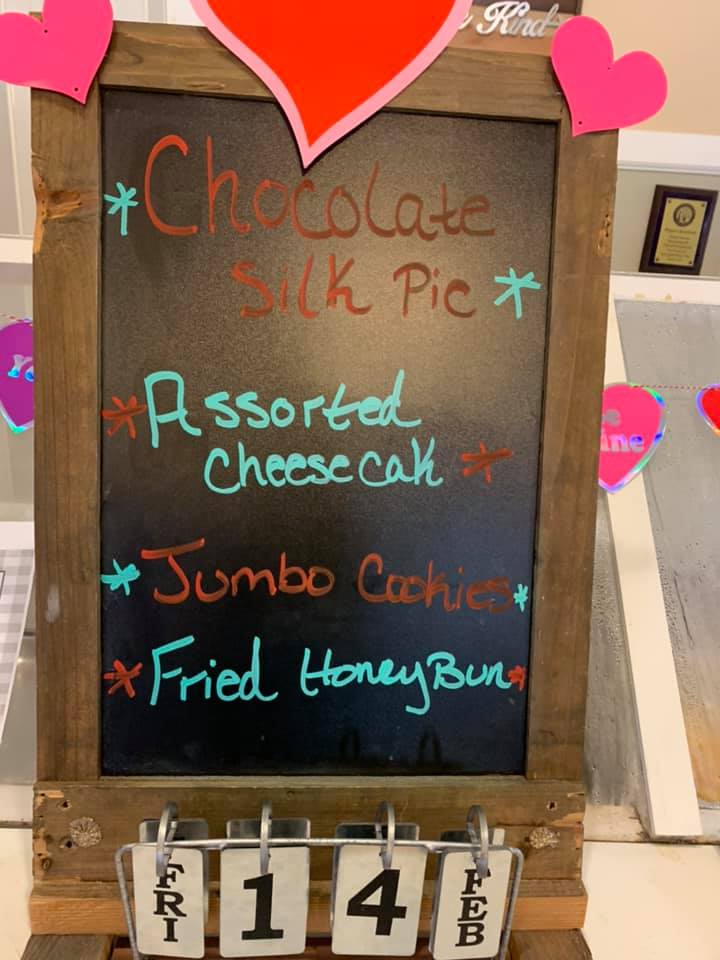 Kind
*Chocolate
Silk Pie*
*Assorted
cheesecak*
*Jumbo Cookies*
*Fried HoneyBun*
FRI 14 FEB